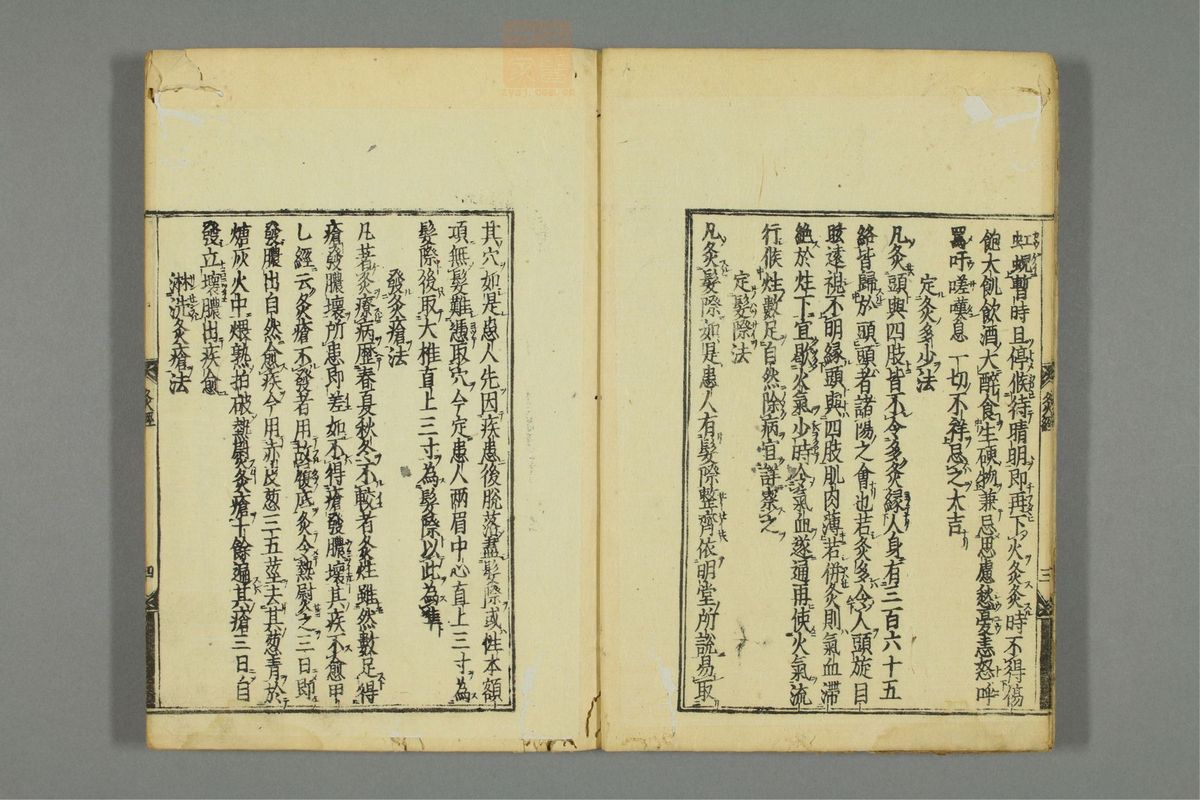 虹蜺暫時且停候待晴明即再下火灸灸時不得傷
飽太飢飲酒大醉食生硬物兼忌思慮愁憂恚怒呼
罵吁嗟嘆息一切不祥忌之大吉
定灸多少法
凡灸頭與四肢皆不令多灸縁人身有三百六十五
絡皆歸於頭頭者諸陽之會也若灸多令人頭旋目
眩遠視不明縁頭與四肢肌肉薄若併灸則氣血滯
絶於炷下宜歇火氣少時令氣血遂通再使火氣流
行候炷數足自然除病宜詳察之
定髮際法
凡灸髮際如是患人有髮際整齊依明堂所説易取
灸經
三
其穴如是患人先因疾患後脱落盡髮際或性本額
項無髮難憑取穴今定患人兩眉中心直上三寸為
髮際後取大椎直上三寸為髮際以此為準
發灸瘡法
凡著灸療病歴春夏秋冬不較者灸炷雖然數足得
瘡發膿壞所患即差如不得瘡發膿壞其疾不愈甲
乙經云灸瘡不發者用故履底灸令熱熨之三日即
發膿出自然愈疾今用赤皮葱三五莖去其葱青於
煻灰火中煨熟拍破熱熨灸瘡十餘遍其瘡三日自
發立壞膿出疾愈
淋洗灸瘡法
灸經
四